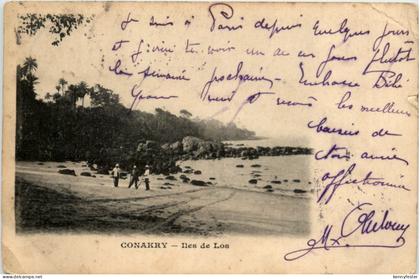 Je suis à Paris depuis quelques jours
et j'irai te voir un de ces jours plutôt
la semaine prochaine. Embrasse Bébé
pour nous et reçois les meilleurs
baisers de
nos amis
affectionnés
CONAKRY — Iles de Los